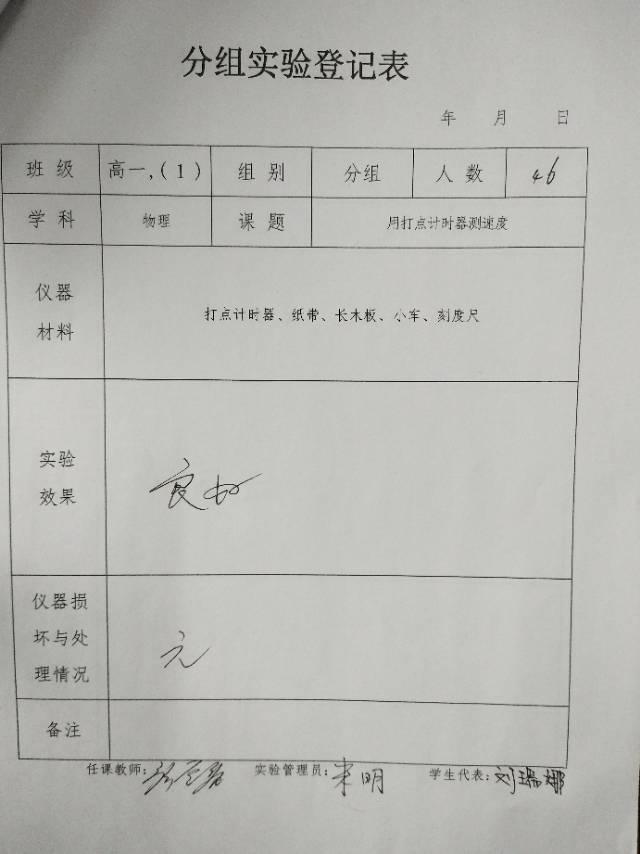 分组实验登记表
年 月 日
班级 高一,(1) 组别 分组 人数 46
学科 物理 课题 用打点计时器测速度
仪器
材料
打点计时器、纸带、长木板、小车、刻度尺
实验
效果
良好
仪器损
坏与处
理情况
无
备注
任课教师: 实验管理员: 朱明 学生代表: 刘瑞娜